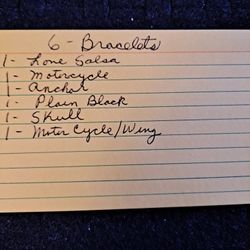 6 - Bracelets
1 - Lone Salsa
1 - Motorcycle
1 - anchor
1 - Plain Black
1 - Skull
1 - Motor Cycle/Wing